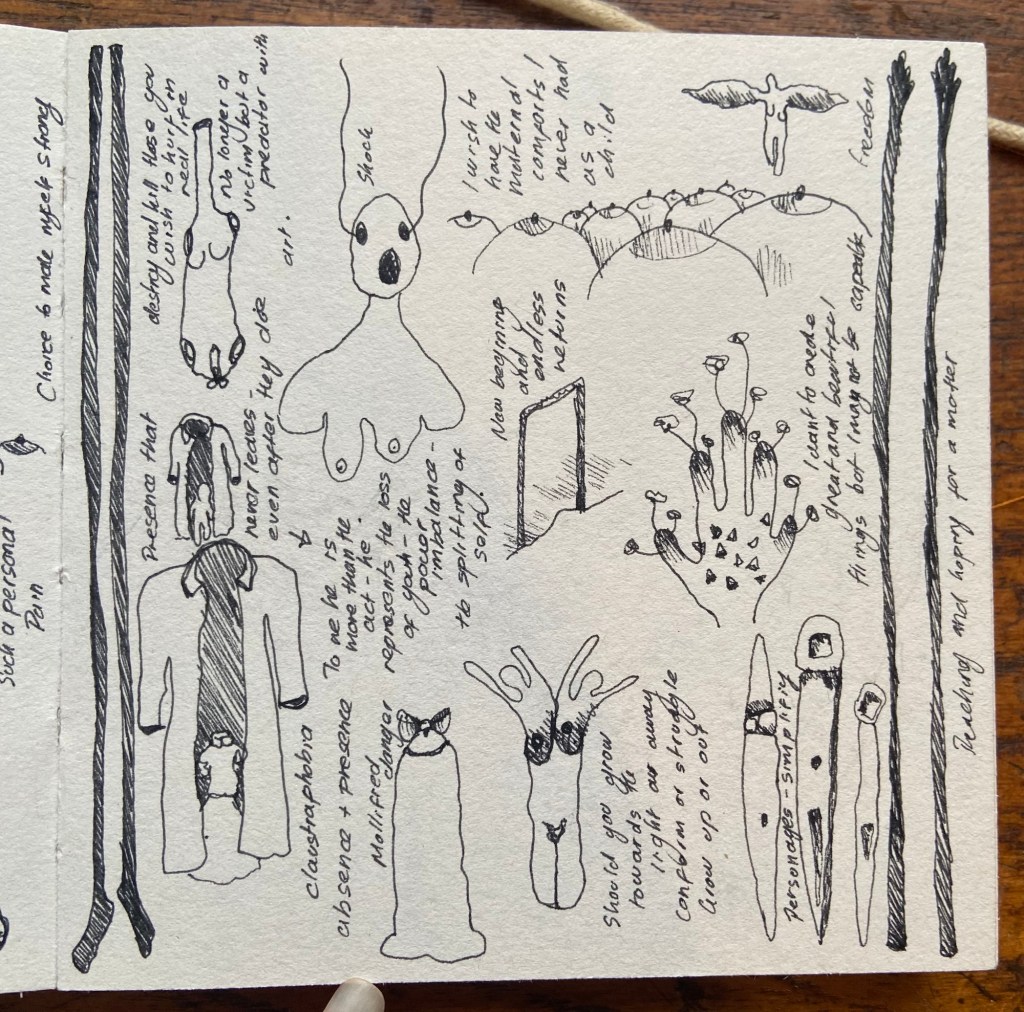 Such a personal
Pain
Choice to make myself strong
Presence that
never leaves -
even after they die
destroy and kill those you
wish to hurt in
real life
No longer a
victim but a
predator with
art.
claustraphobia
&
absence + presence
To me he is
more than the
act - he
represents the loss
of youth - the
power
imbalance -
the splitting of
self?
Shock
Mollified
danger
I wish to
have the
maternal
comforts I
never had
as a
child
New beginning
and
endless
returns
Should you grow
towards the
light or away
Confirm or struggle
Grow up or out
I want to create
great and beautiful
things but I may not be capable
freedom
Personages - simplifiy
Reaching and hoping for a mother